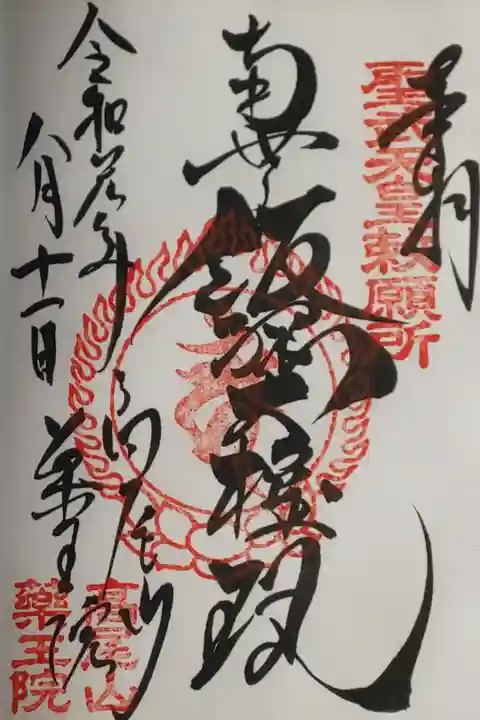 奉拝
聖武天皇勅願所
南無飯縄大権現
令和元年
八月十一日
高尾山
薬王院
高尾山
薬王院